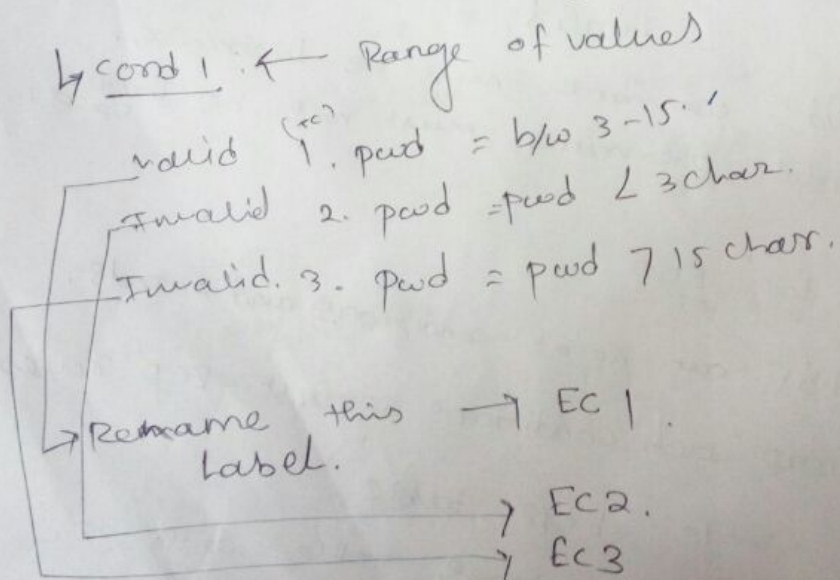 ↳ cond 1. ← Range of values
valid (tc) 1. pwd = b/w 3-15.
Invalid 2. pwd = pwd < 3 char.
Invalid. 3. pwd = pwd > 15 char.
Rename this → EC 1.
Label.
→ EC2.
→ EC3